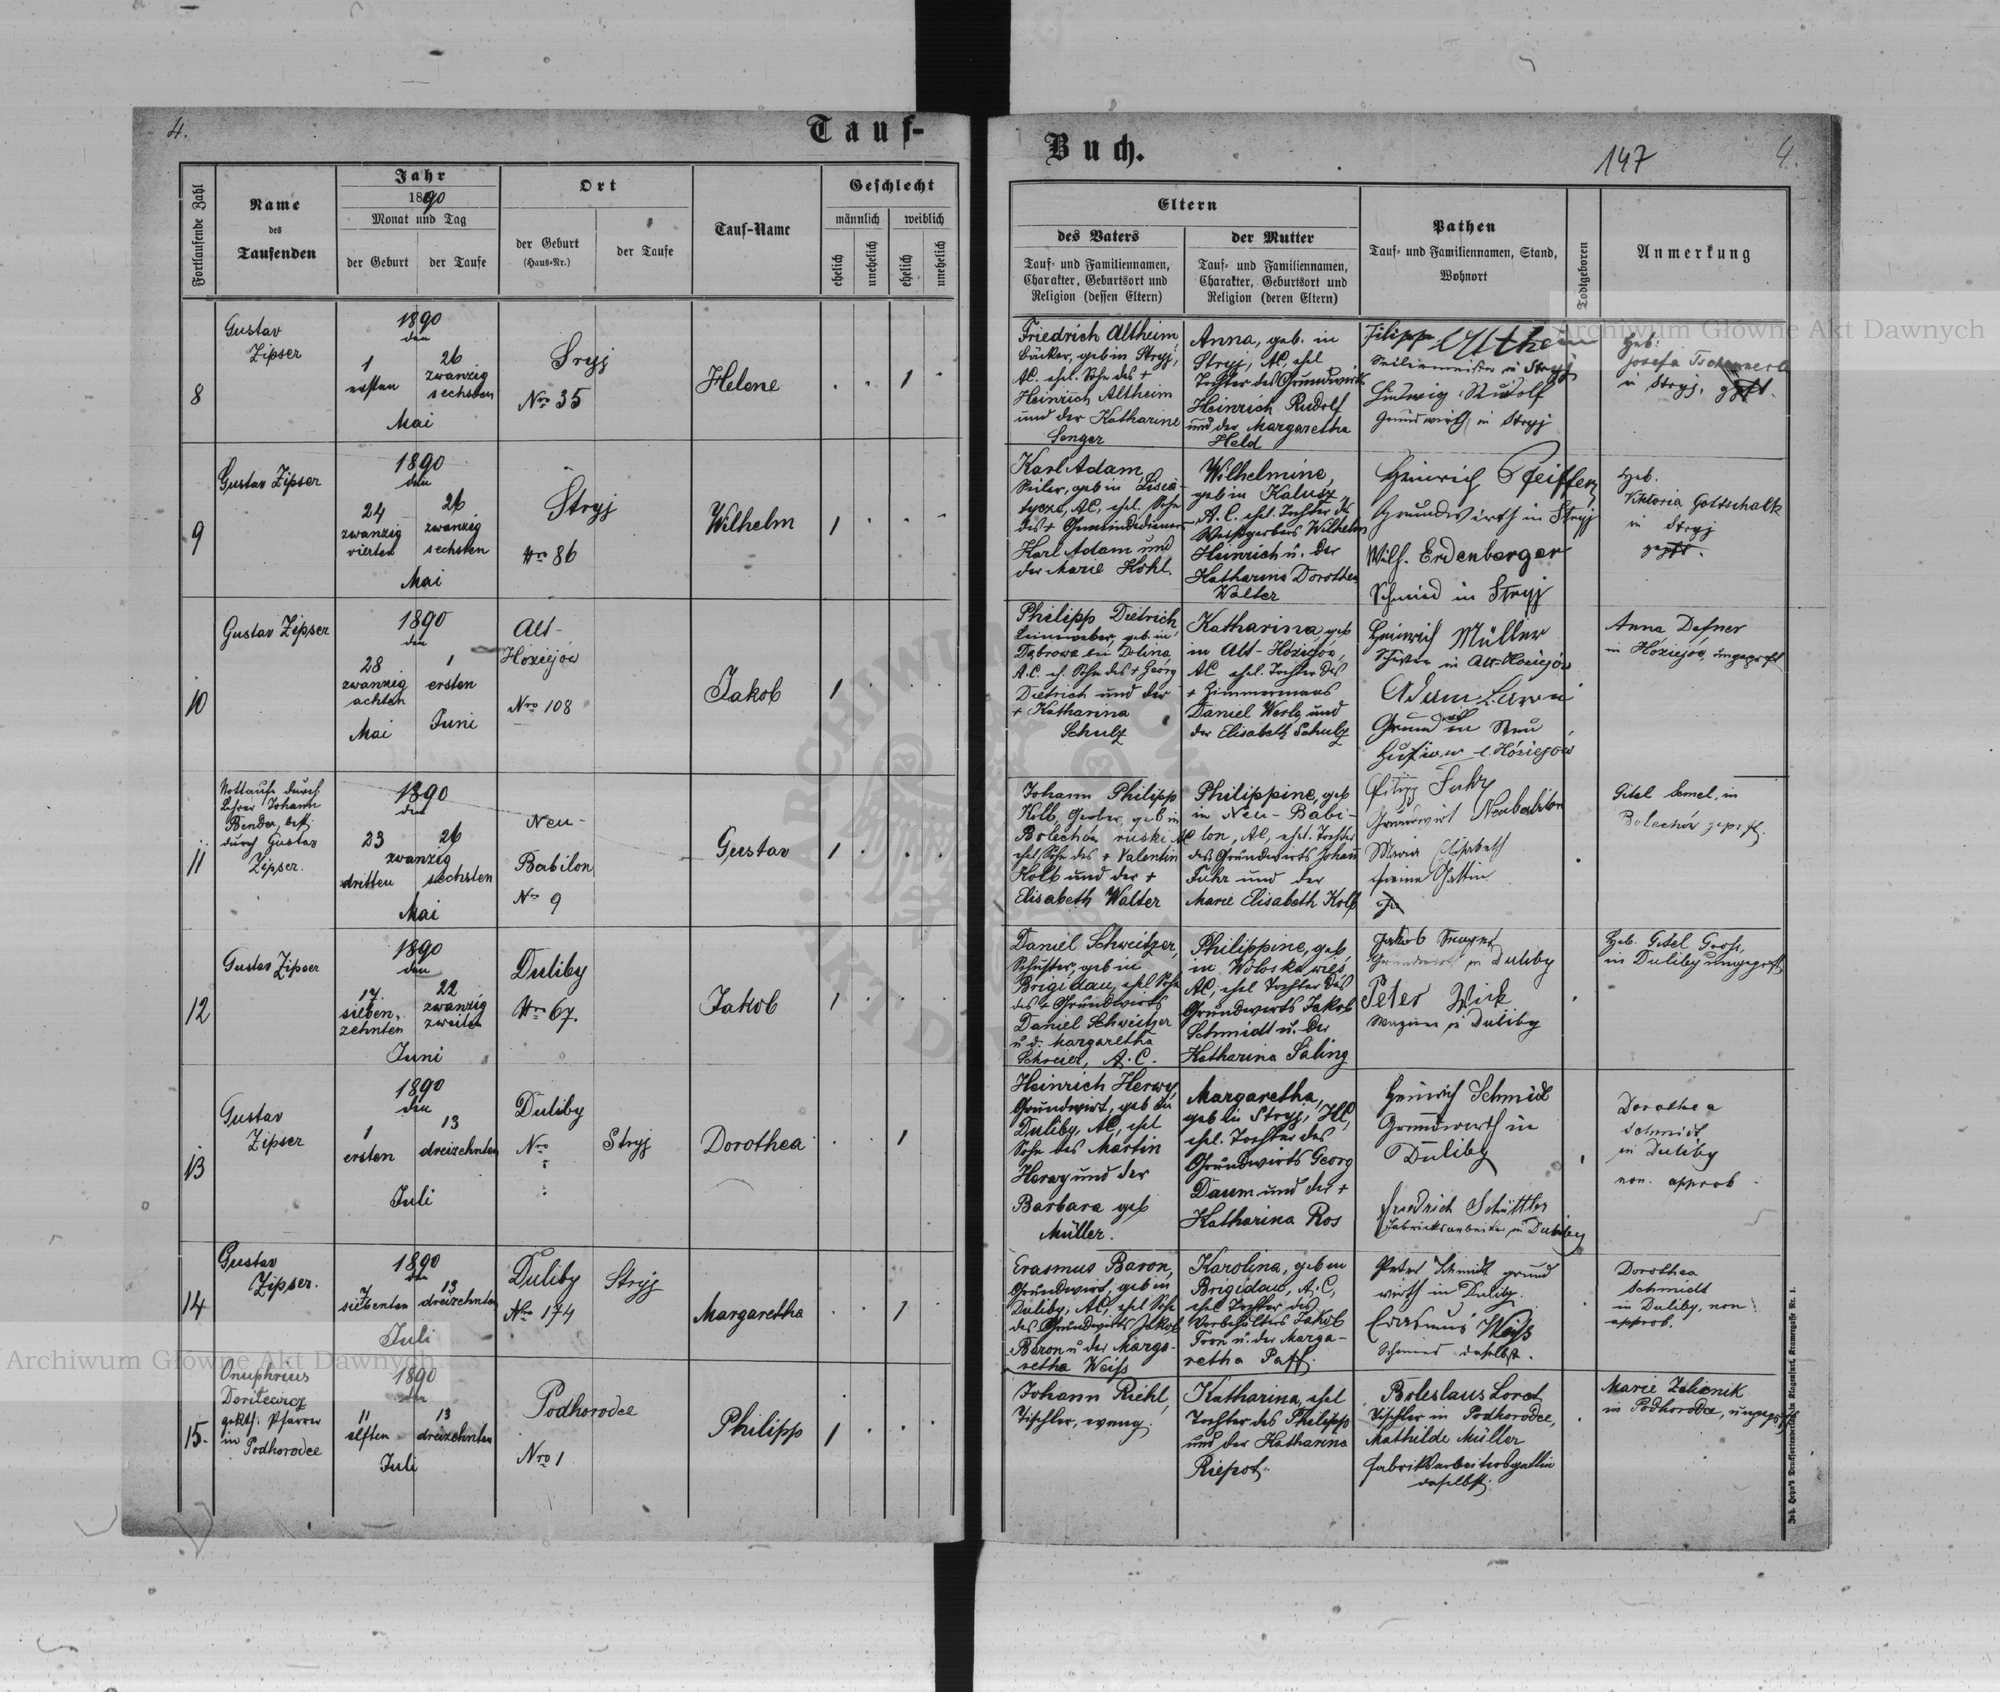 4.
Tauf-
Fortlaufende Zahl
Name
des
Taufenden
Jahr
1890
Monat und Tag
der Geburt
der Taufe
Ort
der Geburt
(Haus-Nr.)
der Taufe
Tauf-Name
Geschlecht
männlich
weiblich
ehelich
unehelich
ehelich
unehelich
8
Gustav
Zipser
1890
den
1
ersten
26
zwanzig
sechsten
Mai
Sryj
Nro 35
Helene
1
9
Gustav Zipser
1890
den
24
zwanzig
vierten
26
zwanzig
sechsten
Mai
Stryj
Nro 86
Wilhelm
1
10
Gustav Zipser
1890
den
28
zwanzig
achten
Mai
1
ersten
Juni
Alt-
Hoziejow
Nro 108
Jakob
1
11
Nottaufe durch
Lehrer Johann
Bender, best.
durch Gustav
Zipser.
1890
den
23
26
zwanzig
dritten
sechsten
Mai
Neu-
Babilon
Nro 9
Gustav
1
12
Gustav Zipser
1890
den
17
sieben-
zehnten
22
zwanzig
zweiten
Juni
Duliby
Nro 67.
Jakob
1
13
Gustav
Zipser
1890
den
1
ersten
13
dreizehnten
Juli
Duliby
Nro
Stryj
Dorothea
1
14
Gustav
Zipser.
1890
den
7
siebenten
13
dreizehnten
Juli
Duliby
Nro 174
Stryj
Margaretha
1
15.
Onuphrius
gr. kth. Pfarrer
in Podhorodce
1890
den
11
elften
13
dreizehnten
Juli
Podhorodce
Nro 1
Philipp
1
Buch.
147
4.
Eltern
des Vaters
Tauf- und Familiennamen,
Charakter, Geburtsort und
Religion (dessen Eltern)
der Mutter
Tauf- und Familiennamen,
Charakter, Geburtsort und
Religion (deren Eltern)
Pathen
Tauf- und Familiennamen, Stand,
Wohnort
Todtgeboren
Anmerkung
Friedrich Altheim,
Bäcker, geb in Stryj,
AC. ehel. Sohn des +
Heinrich Altheim
und der Katharine
Senger
Anna, geb. in
Stryj, AC, ehel
Tochter des Grundwirts
Heinrich Rudolf
und der Margaretha
Held
Filipp Altheim
Seilermeister in Stryj
Ludwig Rudolf
Grundwirth in Stryj
Heb:
Josefa
in Stryj, gepft.
Karl Adam,
Seiler, geb in
AC, ehel. Sohn
des + Gemeindedieners
Karl Adam und
der Marie Kohl.
Wilhelmine,
geb in Kalusz,
A.C. ehel. Tochter des
Weißgerbers Wilhelm
Heinrich u. der
Katharina Dorothea
Walter
Heinrich Pfeiffer
Grundwirth in Stryj
Wilh. Erdenberger
Schmied in Stryj
Heb.
Viktoria Gottschalk
in Stryj
gepft.
Philipp Dietrich,
Leinweber, geb in
Dąbrowa bei Dolina,
A.C. eh. Sohn des + Georg
Dietrich und der
+ Katharina
Schulz
Katharina, geb
in Alt-Hoziejow,
AC ehel. Tochter des
+ Zimmermanns
Daniel Werle und
der Elisabeth Schulz
Heinrich Müller
in Alt-Hoziejów
Adam
Grundwirth in Neu
Hoziejow
Anna Dafner
in Hoziejow, ungeprft
Johann Philipp
Kolb, Gerber, geb in
Bolechów ruski AC
ehel Sohn des + Valentin
Kolb und der +
Elisabeth Walter
Philippine, geb
in Neu-Babi-
lon, AC, ehel. Tochter
des Grundwirts Johann
Fuhr und der
Marie Elisabeth Kolb
Filipp Fuhr
Grundwirt Neubabilon
Maria Elisabeth
seine Gattin
Gitel Semel, in
Bolechów geprft.
Daniel Schweitzer,
Schuster, geb in
Brigidau, ehel Sohn
des + Grundwirts
Daniel Schweitzer
u. d. Margaretha
Schreier, A.C.
Philippine, geb
in Woloska wieś,
AC, ehel Tochter des
Grundwirts Jakob
Schmidt u. der
Katharina Saling
Jakob
Grundwirt in Duliby
Peter Wirk
Wagner in Duliby
Heb. Gitel Gross,
in Duliby ungeprft
Heinrich Herwy,
Grundwirt, geb in
Duliby, AC, ehel
Sohn des Martin
Herwy und der
Barbara geb
Müller.
Margaretha,
geb in Stryj, HC,
ehel. Tochter des
Grundwirts Georg
Daum und der +
Katharina Ros
Heinrich Schmidt
Grundwirth in
Duliby
Friedrich Schüttler
Fabriksarbeiter in Duliby
Dorothea
Schmidt
in Duliby
non. approb.
Erasmus Baron,
Grundwirt, geb in
Duliby, AC, ehel Sohn
des Grundwirts Jakob
Baron u der Marga-
retha Weiss
Karolina, geb in
Brigidau, A.C,
ehel Tochter des
Vorbehälters Jakob
Tron u. der Marga-
retha Paff.
Peter Schmidt grund
wirth in Duliby.
Erasmus Weiss
Schmied daselbst.
Dorothea
Schmidt
in Duliby, non
approb.
Johann Riehl,
Tischler, evang.
Katharina, ehel
Tochter des Philipp
und der Katharina
Riepot.
Boleslaus Lorot
Tischler in Podhorodce,
Mathilde Müller
Fabriksarbeitersgattin
daselbst.
Marie Zelionik
in Podhorodce, ungeprft
Joh. Heyn's Druckfortenverlag in Klagenfurt, Kramergasse Nr. 1.
Archiwum Główne Akt Dawnych
Archiwum Główne Akt Dawnych